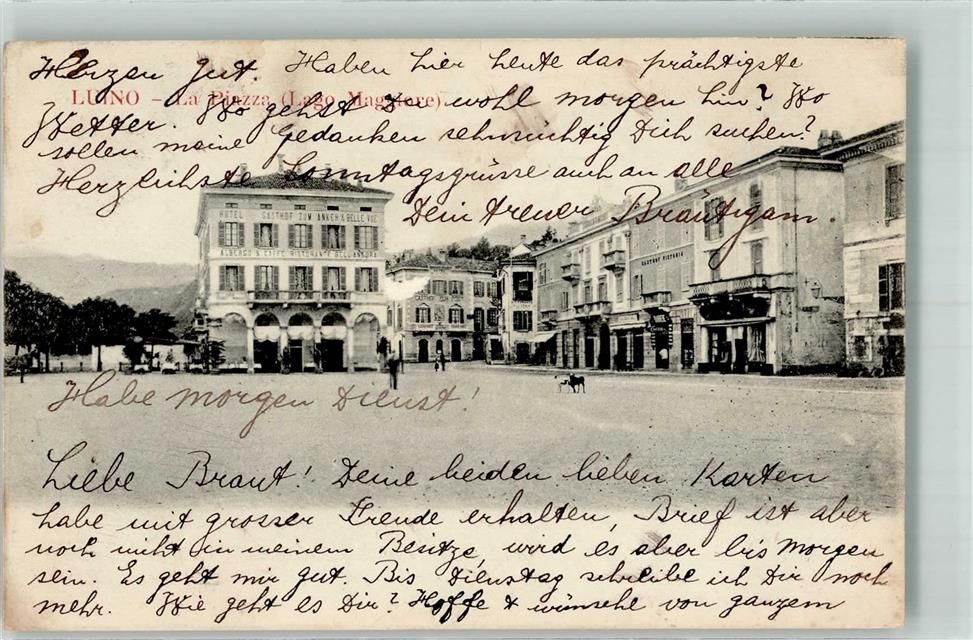 Herzen gut. Haben hier heute das prächtigste
LUINO - La Piazza (Lago Maggiore).
Wetter. Wo gehst Du wohl morgen hin? Wo
sollen meine Gedanken sehnsüchtig Dich suchen?
Herzlichste Sonntagsgrüsse auch an alle
Dein treuer Bräutigam.
HOTEL GASTHOF ZUM ANKER & BELLE VUE
ALBERGO & CAFFÈ RISTORANTE DELL'ANCORA
GASTHOF
GASTHOF VICTORIA
Habe morgen Dienst!
Liebe Braut! Deine beiden lieben Karten
habe mit grosser Freude erhalten, Brief ist aber
noch nicht in meinem Besitze, wird es aber bis morgen
sein. Es geht mir gut. Bis Dienstag schreibe ich Dir noch
mehr. Wie geht es Dir? Hoffe & wünsche von ganzem